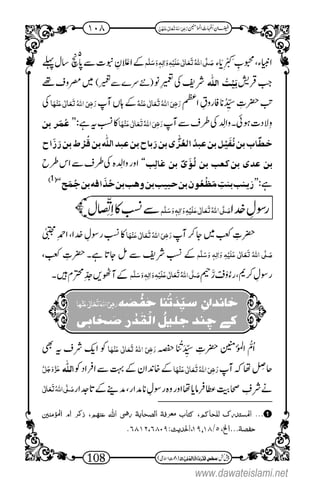 ۱۰۸
انبیاء، محبوبِ کبریاء صَلَّی اللہُ تَعَالٰی عَلَیْہِ وَاٰلِہٖ وَسَلَّم کے اعلانِ نبوت سے پانچ سال پہلے
جب قریش بَیْتُ اللہ شریف کی تعمیرِ نو (نئے سرے سے تعمیر) میں مصروف تھے
تب حضرتِ سیّدُنا فاروقِ اعظم رَضِیَ اللہُ تَعَالٰی عَنْہُ کے ہاں آپ رَضِیَ اللہُ تَعَالٰی عَنْہَا کی
ولادت ہوئی۔ والد کی طرف سے آپ رَضِیَ اللہُ تَعَالٰی عَنْہَا کا نسب یہ ہے: ”عُمَر بن
خطّاب بن نُفَیْل بن عبدُ العُزّٰی بن رباح بن عبد اللہ بن قُرْط بن رَزَاح
بن عدی بن کعب بن لُؤَیّ بن غالِب“ اور والِدہ کی طرف سے اس طرح
ہے: ”زینب بنتِ مَظْعُون بن حبیب بن وھب بن حُذافہ بن جُمَح“ (1)
رسولِ خدا صَلَّی اللہُ تَعَالٰی عَلَیْہِ وَاٰلِہٖ وَسَلَّم سے نسب کا اِتِّصال
حضرتِ کعب میں جا کر آپ رَضِیَ اللہُ تَعَالٰی عَنْہَا کا نسب رسولِ خدا، احمدِ مجتبیٰ
صَلَّی اللہُ تَعَالٰی عَلَیْہِ وَاٰلِہٖ وَسَلَّم کے نسب شریف سے مل جاتا ہے۔ حضرتِ کعب،
رسولِ کریم، رَءُوْفٌ رَّحیم صَلَّی اللہُ تَعَالٰی عَلَیْہِ وَاٰلِہٖ وَسَلَّم کے آٹھویں جدِّ محترم ہیں۔
خاندانِ سیّدَتُنا حَفْصہ رَضِیَ اللہُ تَعَالٰی عَنْہَا
کے چند جلیلُ الْقَدْر صحابی
اُمُّ المؤمنین حضرتِ سیّدَتُنا حفصہ رَضِیَ اللہُ تَعَالٰی عَنْہَا کو ایک شرف یہ بھی
حاصل تھا کہ آپ رَضِیَ اللہُ تَعَالٰی عَنْہَا کے خاندان کے بہت سے افراد کو اللہ عَزَّوَجَلَّ
نے شرفِ صحابیت عطا فرمایا تھا اور وہ رسولِ نامدار، مدینے کے تاجدار صَلَّی اللہُ تَعَالٰی
1 … المستدرک للحاکم، کتاب معرفة الصحابة رضی اللہ عنہم، ذکر ام المؤمنین
حفصة…الخ، ۵/ ۱۸، ۱۹، الحدیث: ۶۸۰۹، ۶۸۱۲.
108
www.dawateislami.net